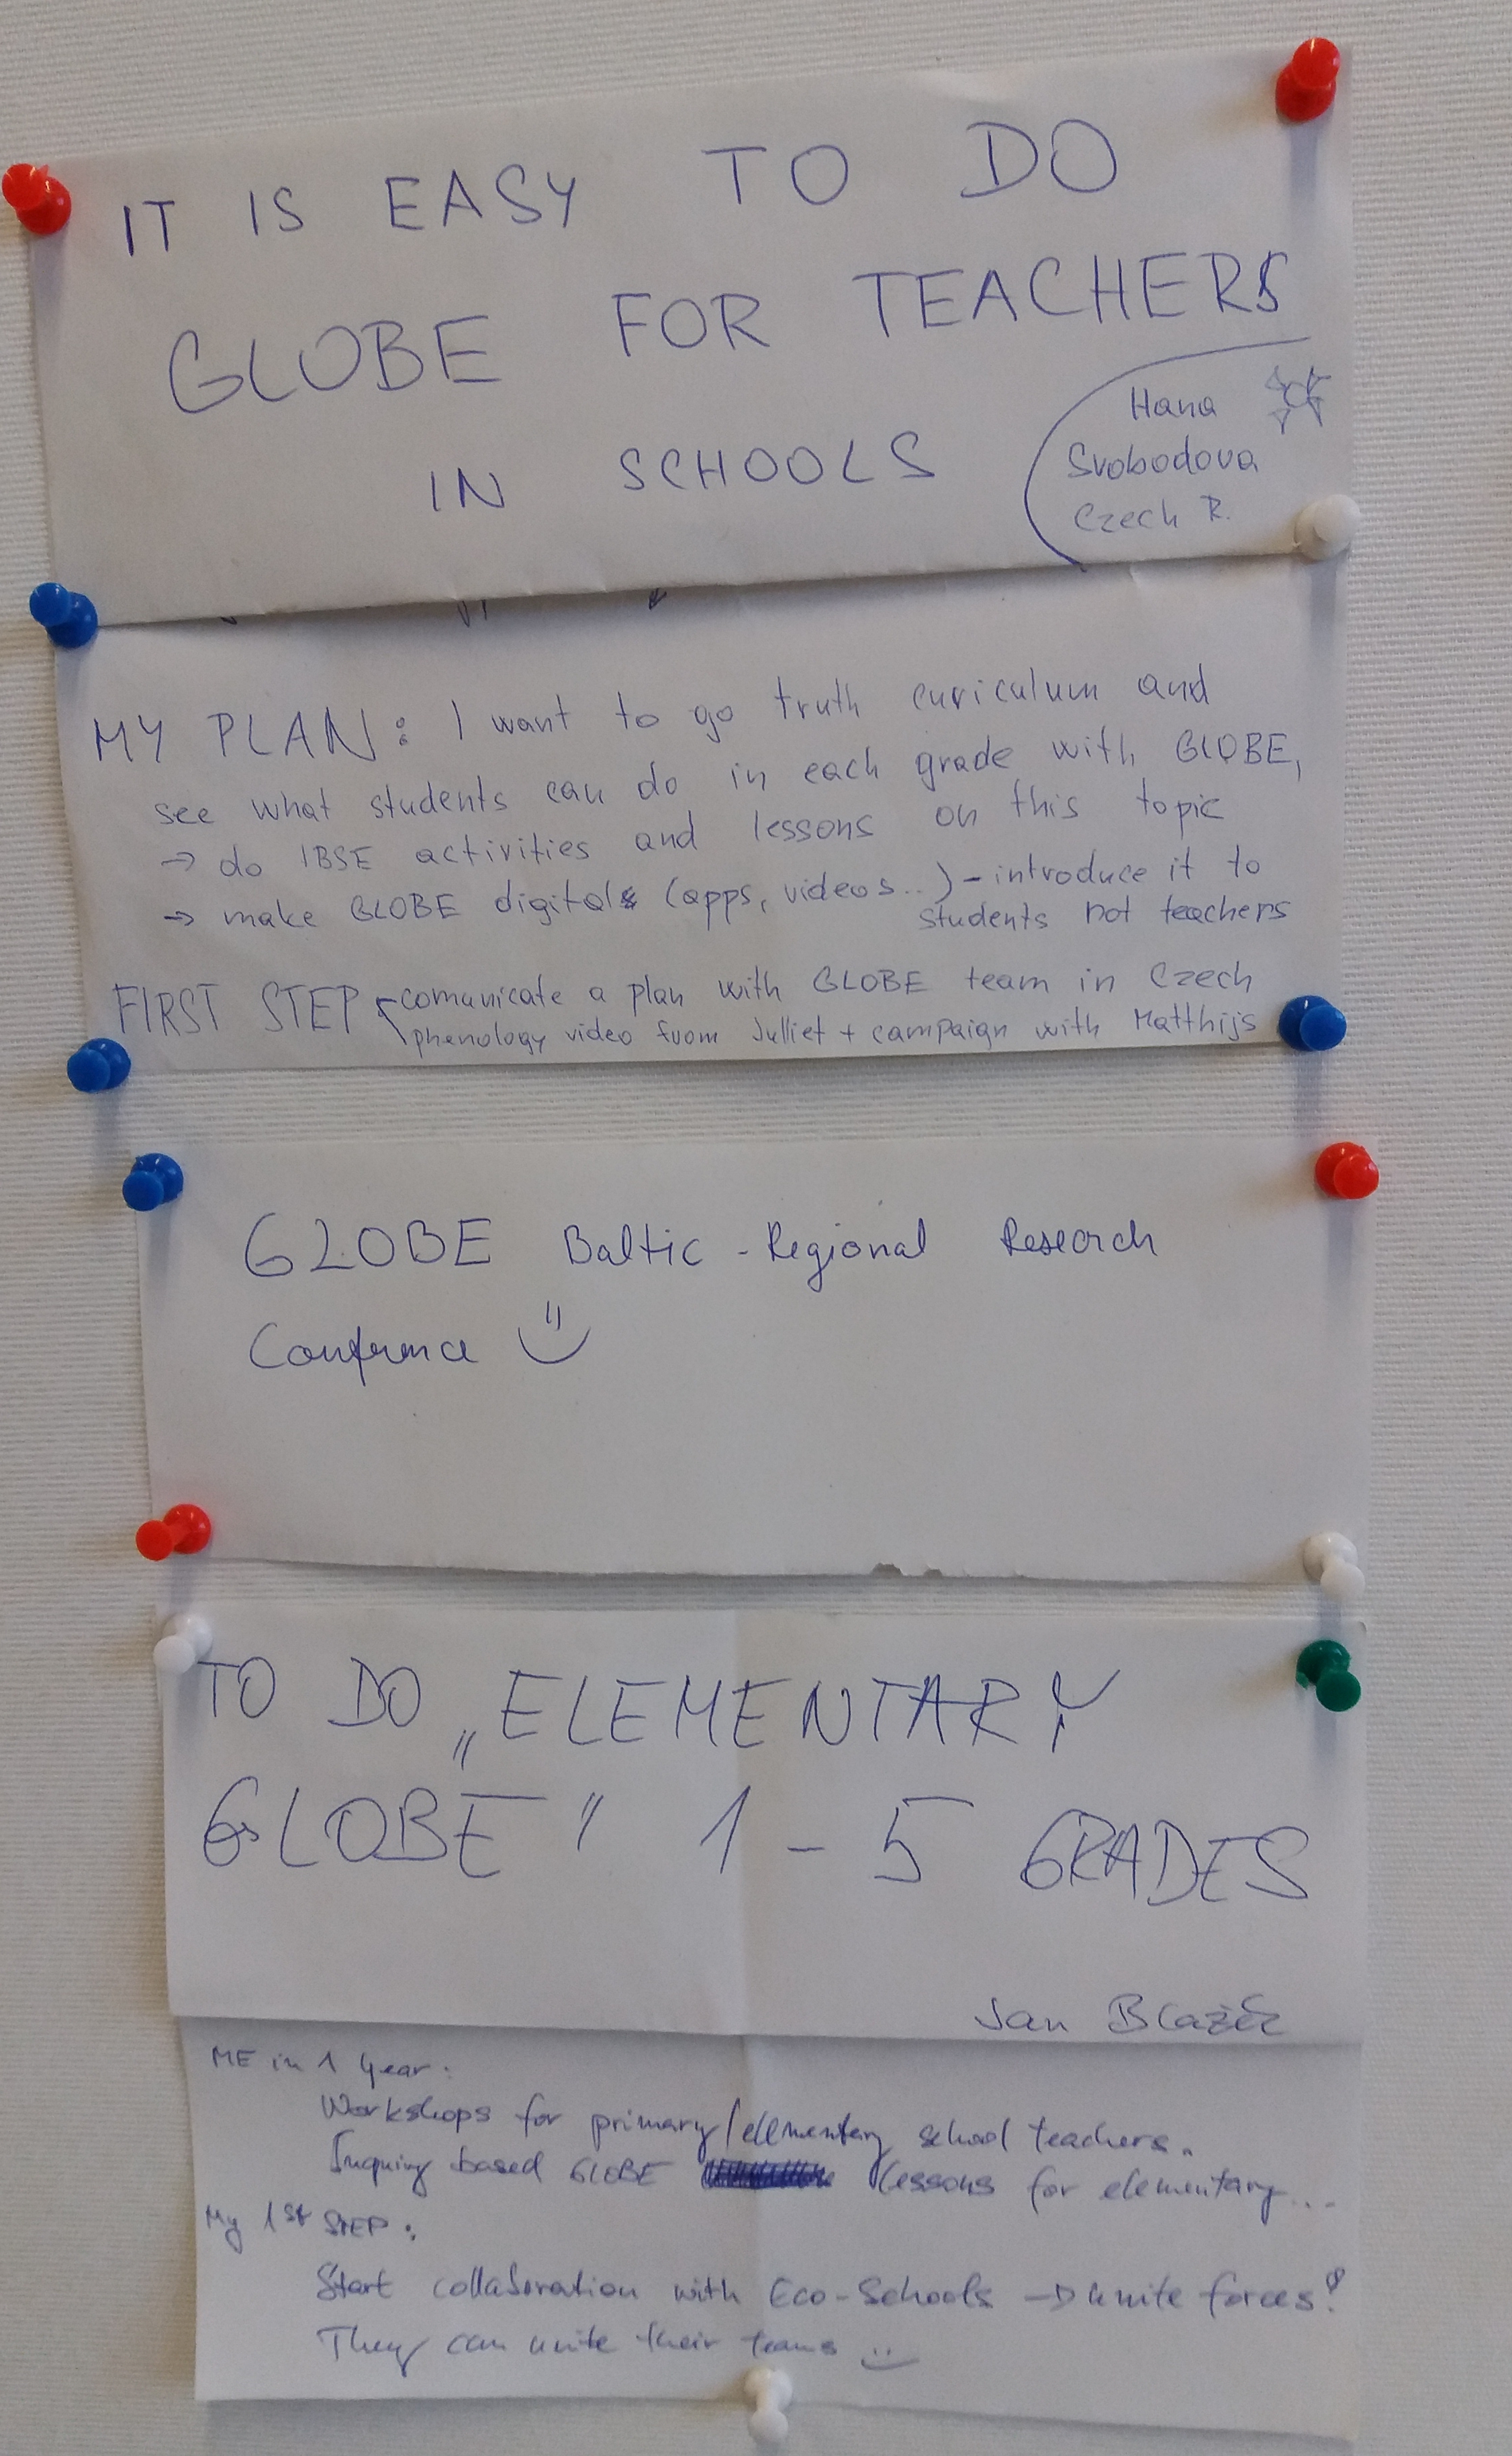 IT IS EASY TO DO
GLOBE FOR TEACHERS
IN SCHOOLS
Hana
Svobodova
Czech R.
MY PLAN: I want to go truth curiculum and
see what students can do in each grade with GLOBE,
→ do IBSE activities and lessons on this topic
→ make GLOBE digital (apps, videos..) - introduce it to
students not teachers
FIRST STEP comunicate a plan with GLOBE team in Czech
phenology video from Julliet + campaign with Matthijs
GLOBE Baltic - Regional Research
Conference
TO DO „ELEMENTARY
GLOBE" 1 - 5 GRADES
Jan Blažek
ME in 1 year:
Workshops for primary/elementary school teachers.
Inquiry based GLOBE lessons for elementary...
My 1st STEP:
Start collaboration with Eco-Schools → unite forces!
They can unite their teams